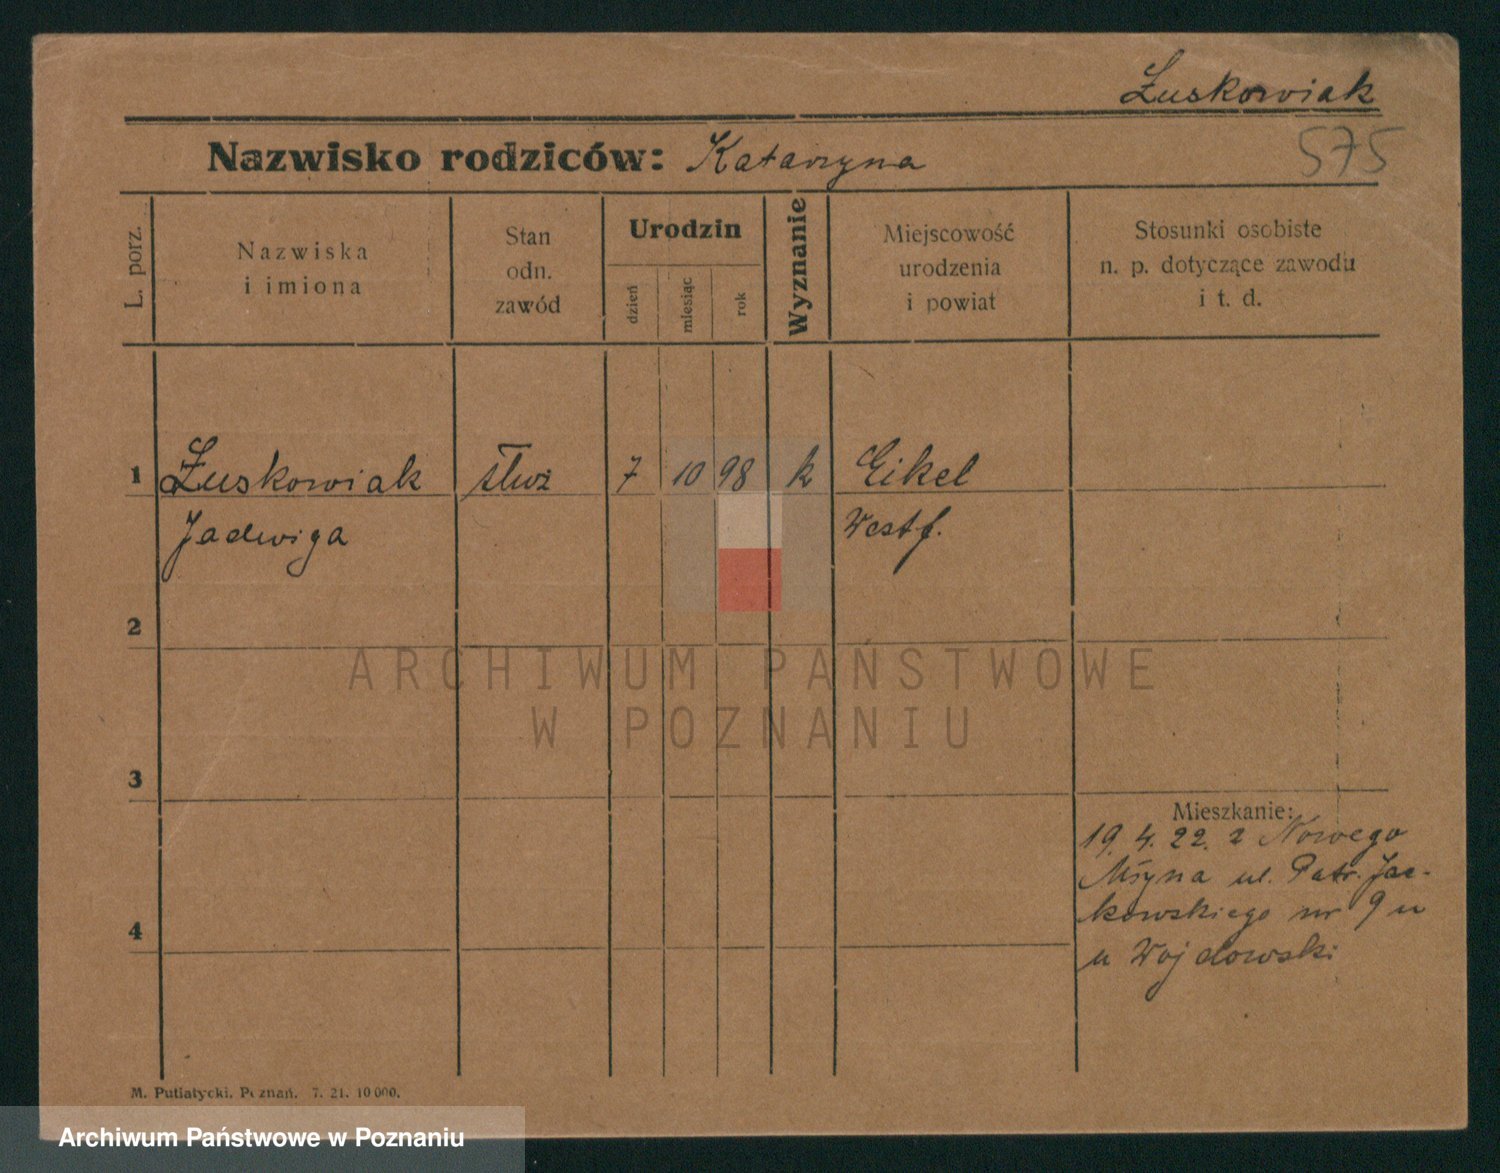 Żuskowiak
Nazwisko rodziców: Katarzyna
575
L. porz.
Nazwiska
i imiona
Stan
odn.
zawód
Urodzin
dzień
miesiąc
rok
Wyznanie
Miejscowość
urodzenia
i powiat
Stosunki osobiste
n. p. dotyczące zawodu
i t. d.
1 Żuskowiak służ 7 10 98 k Eikel
Jadwiga Westf.
2
3
4
Mieszkanie:
19. 4. 22. z Nowego
Młyna ul. Patr. Jac-
kowskiego nr 9 u
u Wojdowski
M. Putiatycki. Poznań. 7. 21. 10 000.
ARCHIWUM PAŃSTWOWE
W POZNANIU
Archiwum Państwowe w Poznaniu